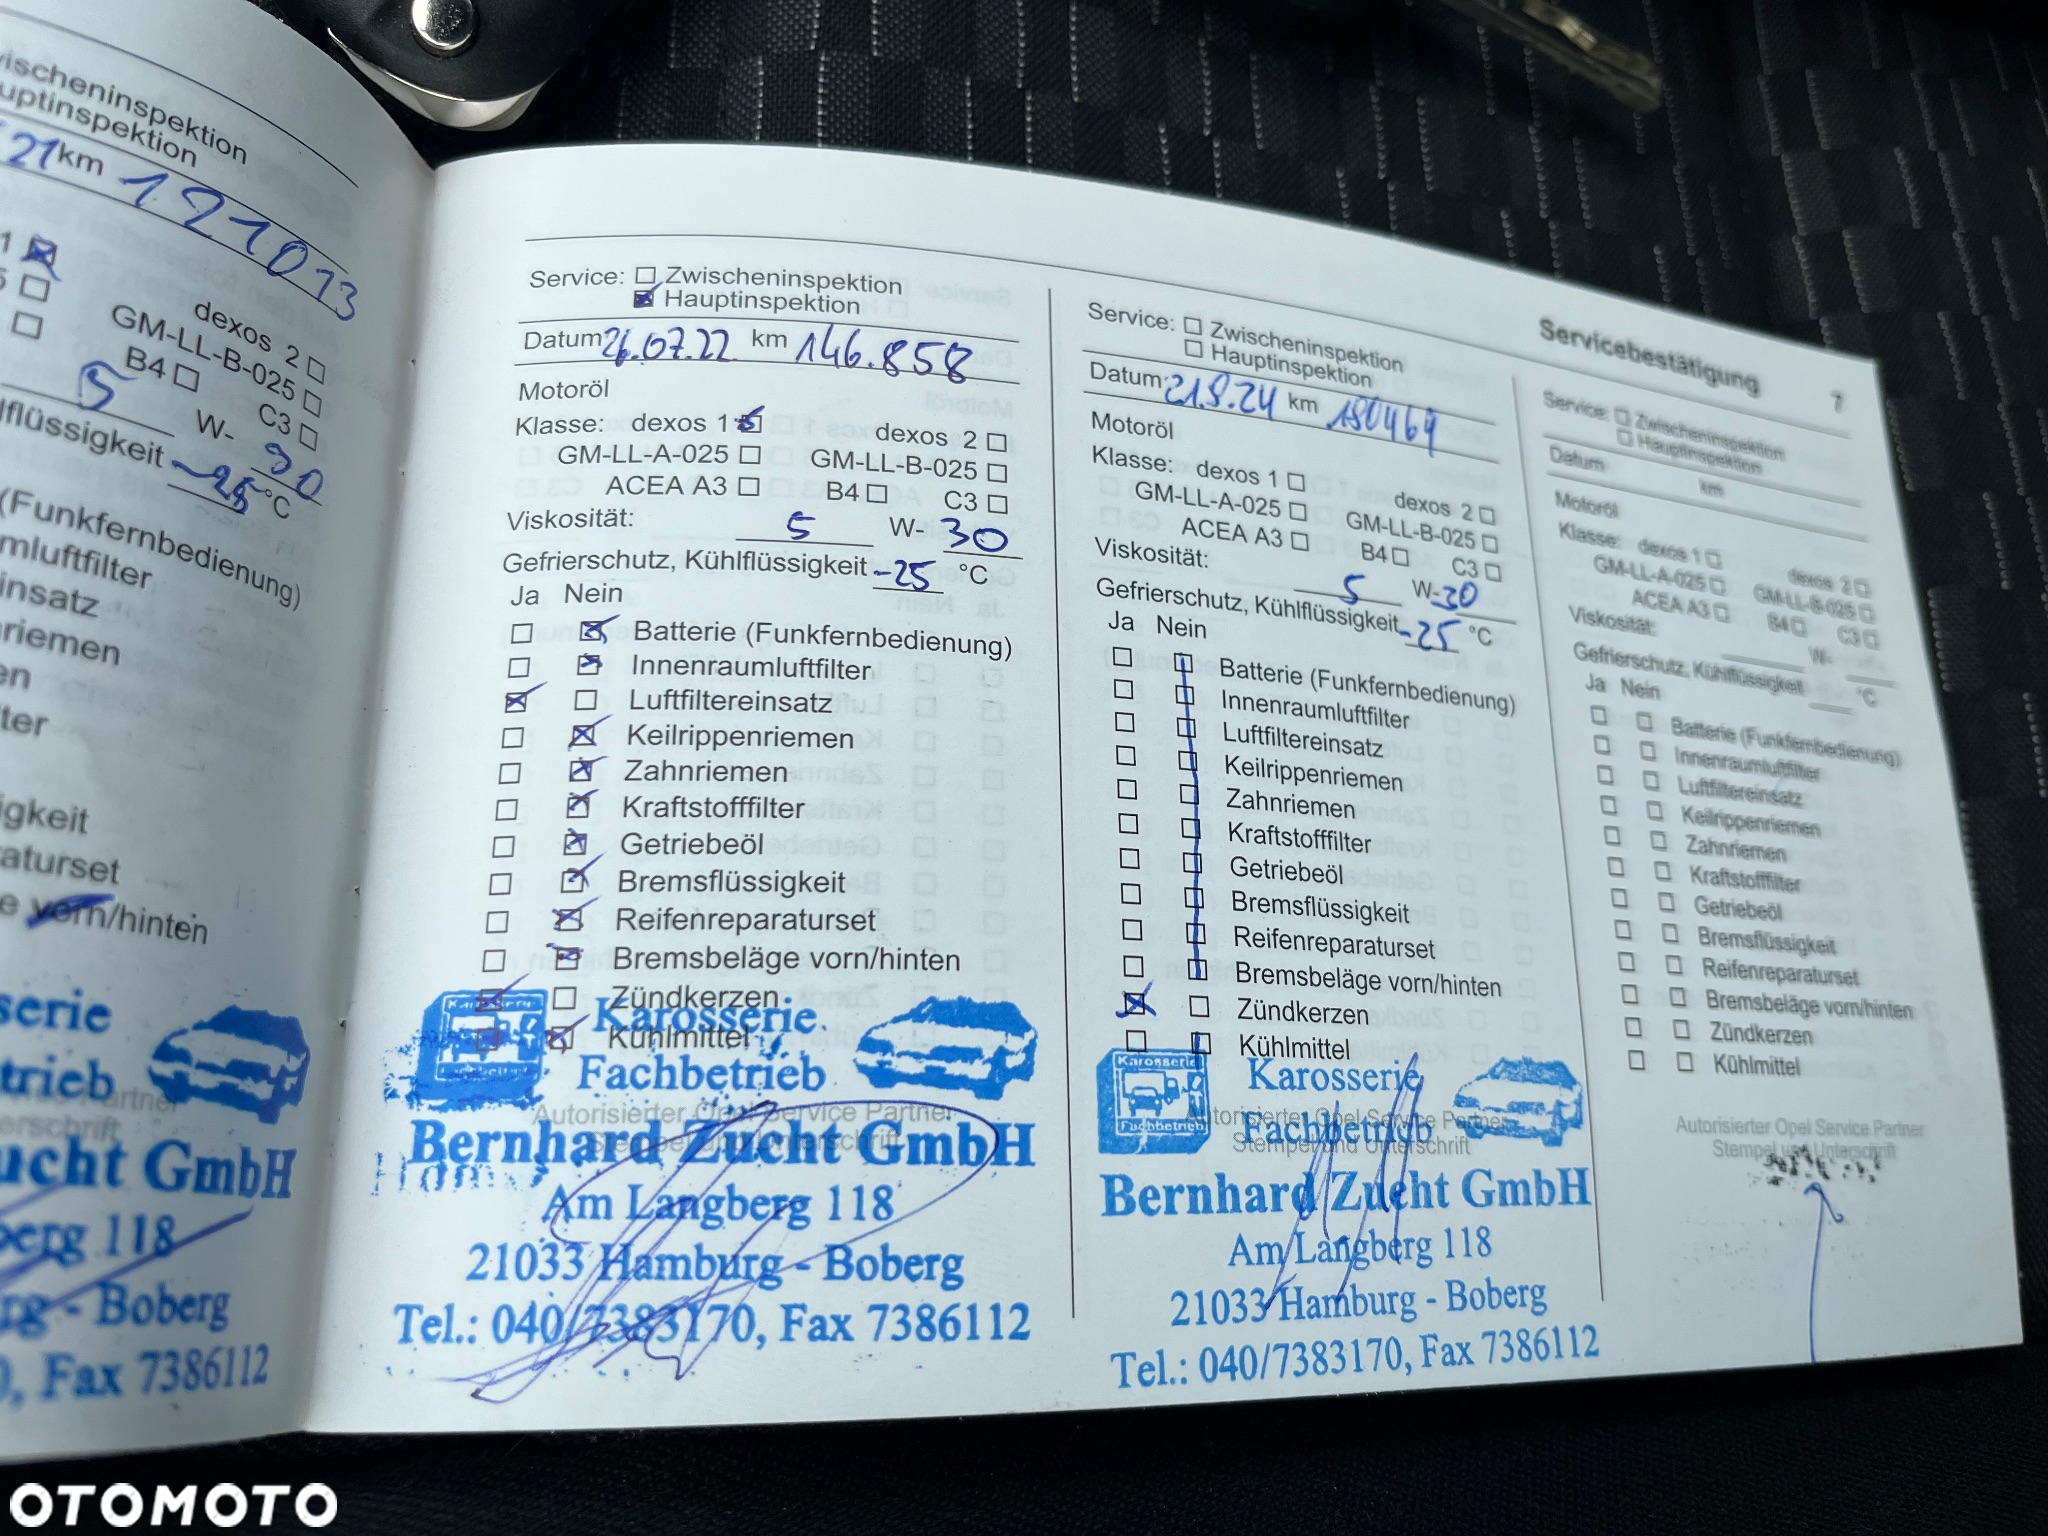 Zwischeninspektion
Hauptinspektion
21 km 121013
dexos 2
GM-LL-B-025
B4
C3
5 W- 30
-25 °C
(Funkfernbedienung)
vorn/hinten
GmbH
118
- Boberg
Fax 7386112
Service: Zwischeninspektion
Hauptinspektion
Datum 26.07.22 km 146.858
Motoröl
Klasse: dexos 1 dexos 2
GM-LL-A-025 GM-LL-B-025
ACEA A3 B4 C3
Viskosität: 5 W- 30
Gefrierschutz, Kühlflüssigkeit -25 °C
Ja Nein
Batterie (Funkfernbedienung)
Innenraumluftfilter
Luftfiltereinsatz
Keilrippenriemen
Zahnriemen
Kraftstofffilter
Getriebeöl
Bremsflüssigkeit
Reifenreparaturset
Bremsbeläge vorn/hinten
Zündkerzen
Kühlmittel
Karosserie
Fachbetrieb
Autorisierter Opel Service Partner
Stempel und Unterschrift
Bernhard Zucht GmbH
Am Langberg 118
21033 Hamburg - Boberg
Tel.: 040/7383170, Fax 7386112
Service: Zwischeninspektion
Hauptinspektion
Datum 21.9.24 km 180469
Motoröl
Klasse: dexos 1 dexos 2
GM-LL-A-025 GM-LL-B-025
ACEA A3 B4 C3
Viskosität: 5 W- 30
Gefrierschutz, Kühlflüssigkeit -25 °C
Ja Nein
Batterie (Funkfernbedienung)
Innenraumluftfilter
Luftfiltereinsatz
Keilrippenriemen
Zahnriemen
Kraftstofffilter
Getriebeöl
Bremsflüssigkeit
Reifenreparaturset
Bremsbeläge vorn/hinten
Zündkerzen
Kühlmittel
Karosserie
Fachbetrieb
Karosserie
Fachbetrieb
Autorisierter Opel Service Partner
Stempel und Unterschrift
Bernhard Zucht GmbH
Am Langberg 118
21033 Hamburg - Boberg
Tel.: 040/7383170, Fax 7386112
Servicebestätigung 7
Service: Zwischeninspektion
Hauptinspektion
Datum km
Motoröl
Klasse: dexos 1 dexos 2
GM-LL-A-025 GM-LL-B-025
ACEA A3 B4 C3
Viskosität: W-
Gefrierschutz, Kühlflüssigkeit °C
Ja Nein
Batterie (Funkfernbedienung)
Innenraumluftfilter
Luftfiltereinsatz
Keilrippenriemen
Zahnriemen
Kraftstofffilter
Getriebeöl
Bremsflüssigkeit
Reifenreparaturset
Bremsbeläge vorn/hinten
Zündkerzen
Kühlmittel
Autorisierter Opel Service Partner
Stempel und Unterschrift
OTOMOTO